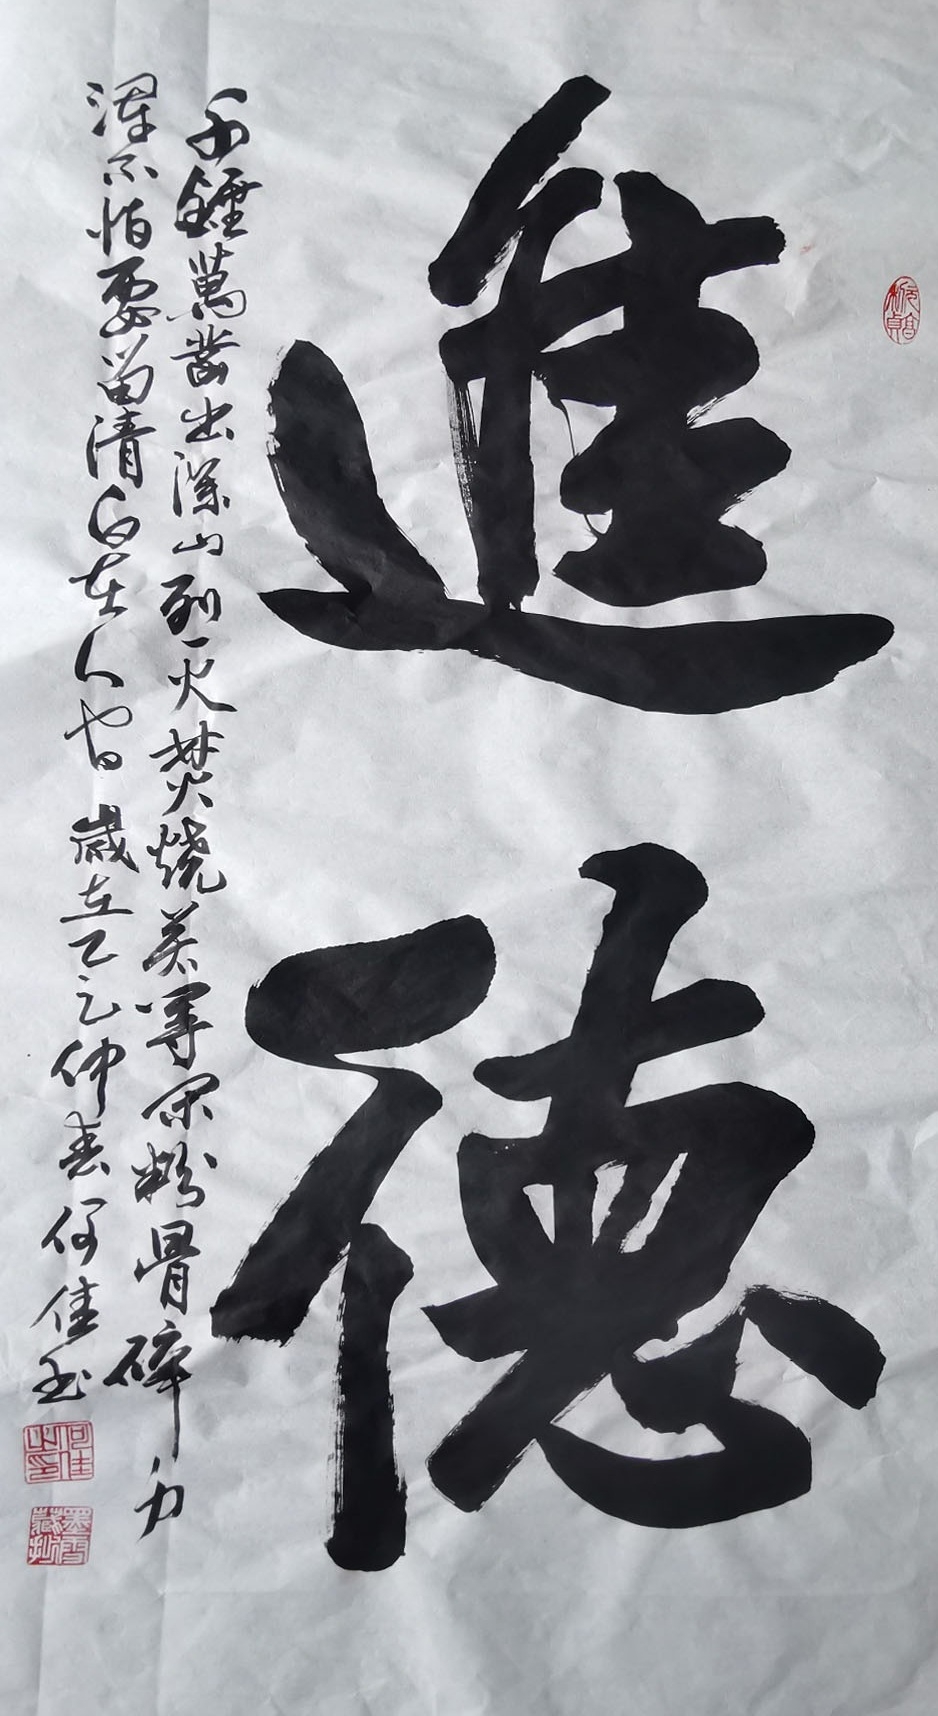 進德
千錘萬凿出深山烈火焚燒若等閑粉骨碎身
渾不怕要留清白在人間 歲在乙巳仲春何佳书
何佳之印